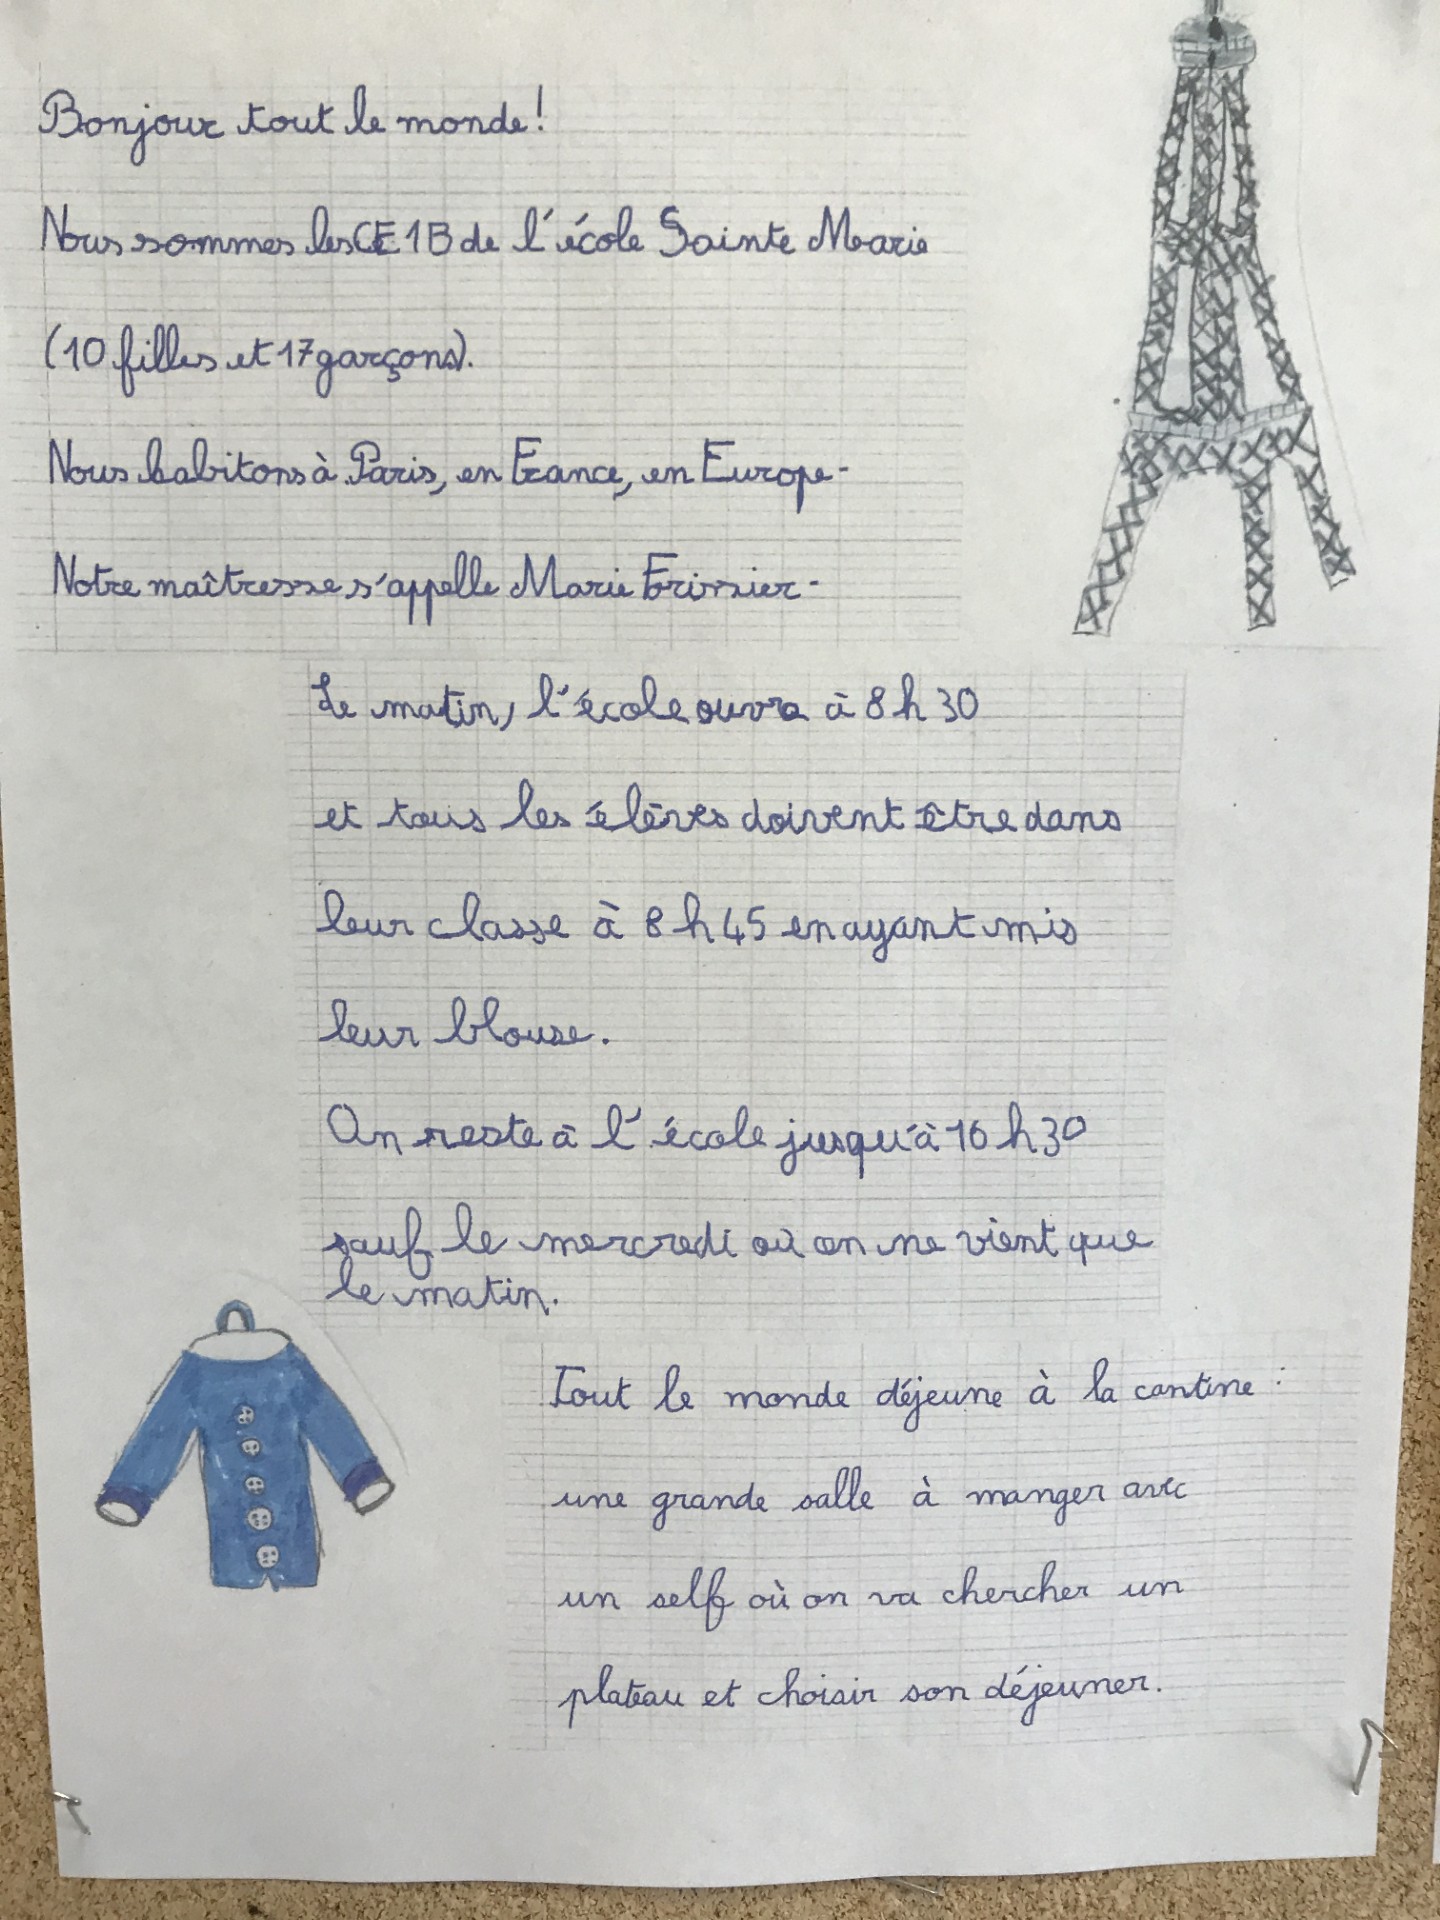 Bonjour tout le monde !
Nous sommes les CE1B de l'école Sainte Marie
(10 filles et 17 garçons).
Nous habitons à Paris, en France, en Europe.
Notre maîtresse s'appelle Marie
Le matin, l'école ouvre à 8 h 30
et tous les élèves doivent être dans
leur classe à 8 h 45 en ayant mis
leur blouse.
On reste à l'école jusqu'à 16 h 30
sauf le mercredi où on ne vient que
le matin.
Tout le monde déjeune à la cantine :
une grande salle à manger avec
un self où on va chercher un
plateau et choisir son déjeuner.